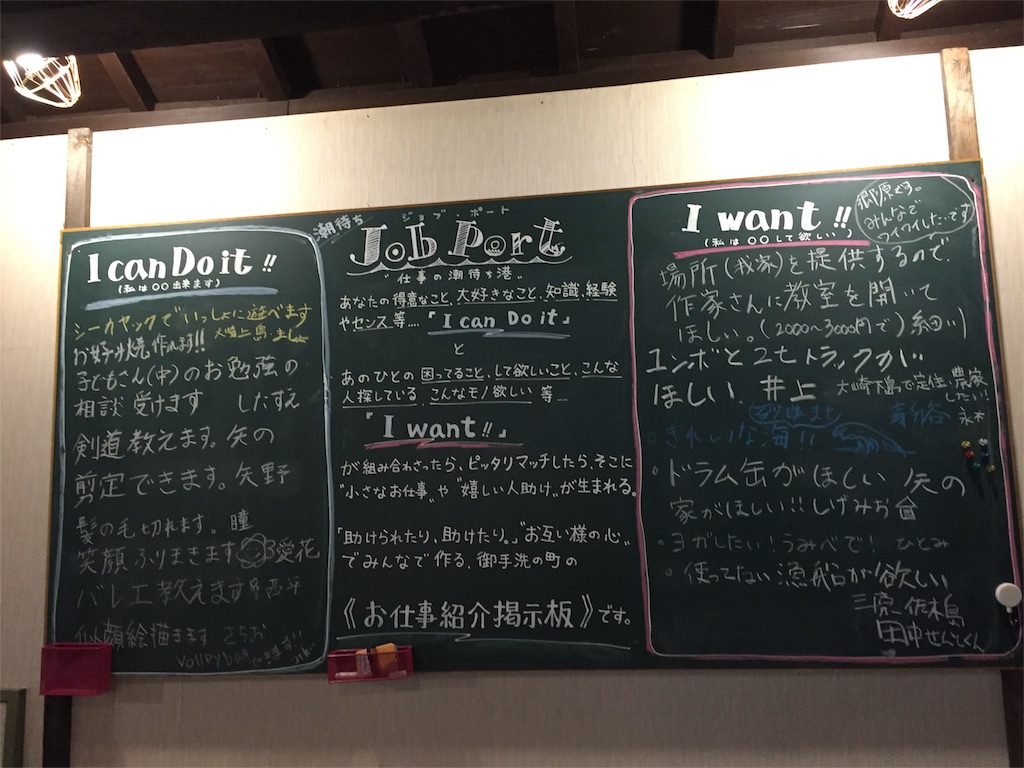 I can Do it !!
(私は〇〇出来ます)
シーカヤックでいっしょに遊べます
大崎上島
お好み焼作れます!!
子どもさん(中)のお勉強の
相談受けます したすえ
剣道教えます。矢の
剪定できます。矢野
髪の毛切れます。瞳
笑顔ふりまきます 愛花
バレエ教えます 西平
似顔絵描きます さらお
Volleyball
潮待ち
ジョブ ポート
Job Port
"仕事の潮待ち港"
あなたの得意なこと、大好きなこと、知識、経験
やセンス等....『I can Do it』
と
あのひとの困ってること、して欲しいこと、こんな
人探している、こんなモノ欲しい 等....
『I want !!』
が組み合わさったら、ピッタリマッチしたら、そこに
"小さなお仕事"や"嬉しい人助け"が生まれる。
「助けられたり、助けたり。」"お互い様の心"
でみんなで作る、御手洗の町の
《お仕事紹介掲示板》です。
I want !!
(私は〇〇して欲しい!)
みんなで
ワイワイしたいです
場所(我家)を提供するので、
作家さんに教室を開いて
ほしい。(2000〜3000円で)細川
ユンボと2tトラックが
ほしい 井上
大崎下島で定住、農家
したい!
永木
きれいな海!!
・ドラム缶がほしい 矢の
家がほしい!!しげみお
・ヨガしたい!うみべで! ひとみ
・使ってない漁船が欲しい
三原 佐木島
田中せんとくん